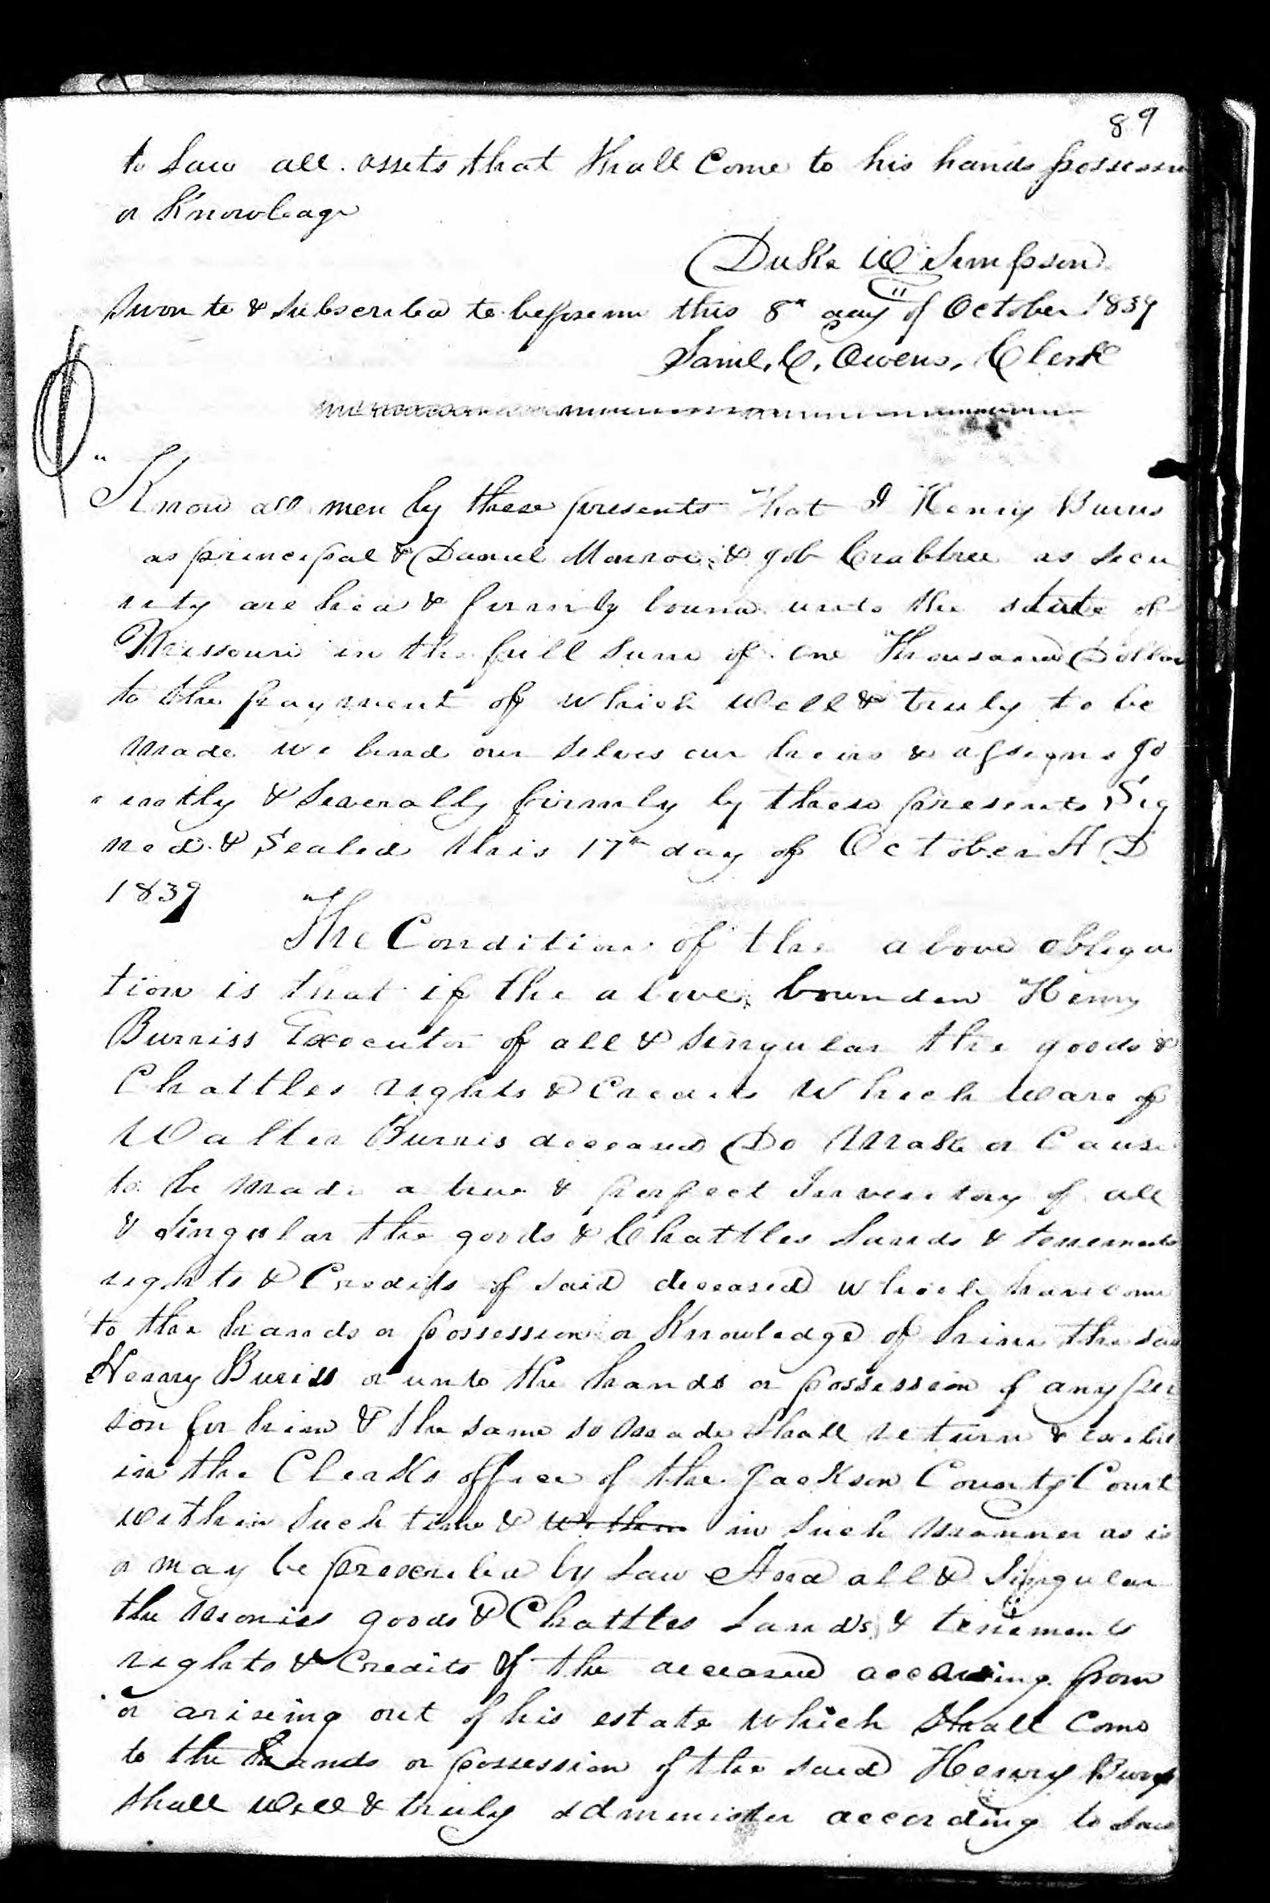 89
to Law all assets that Shall Come to his hands possession
or Knowledge
Duke W Simpson
Sworn to & Subscribed to before me this 8th day of October 1839
Saml. C. Owens, Clerk
Know all men by these presents That I Henry Burris
as principal & Daniel Monroe & Job Crabtree as Secu
rity are held & firmly bound unto the state of
Missouri in the full Sum of one Thousand Dollars
to the payment of which well & truly to be
made we bind our Selves our heirs & assigns Jo
intly & Severally firmly by these presents Sig
ned & Sealed this 17th day of October A D
1839
The Condition of the above obliga
tion is that if the above bounden Henry
Burriss Executor of all & Singular the goods &
Chattles rights & Credits which ware of
Walter Burris deceased Do Make or Cause
to be made a true & perfect Inventory of all
& Singular the goods & Chattles Lands & tenements
rights & Credits of said deceased which have come
to the hands or possession or Knowledge of him the said
Henry Buriss or unto the hands or possession of any per
son for him & the same so made Shall return &
in the Clerks office of the Jackson County Court
within Such time & within in Such manner as is
or may be prescribed by Law And all & Singular
the Monies goods & Chattles Lands & tenements
rights & Credits of the deceased accruing from
or arising out of his estate which Shall Come
to the hands or possession of the said Henry Burris
Shall well & truly administer according to Law